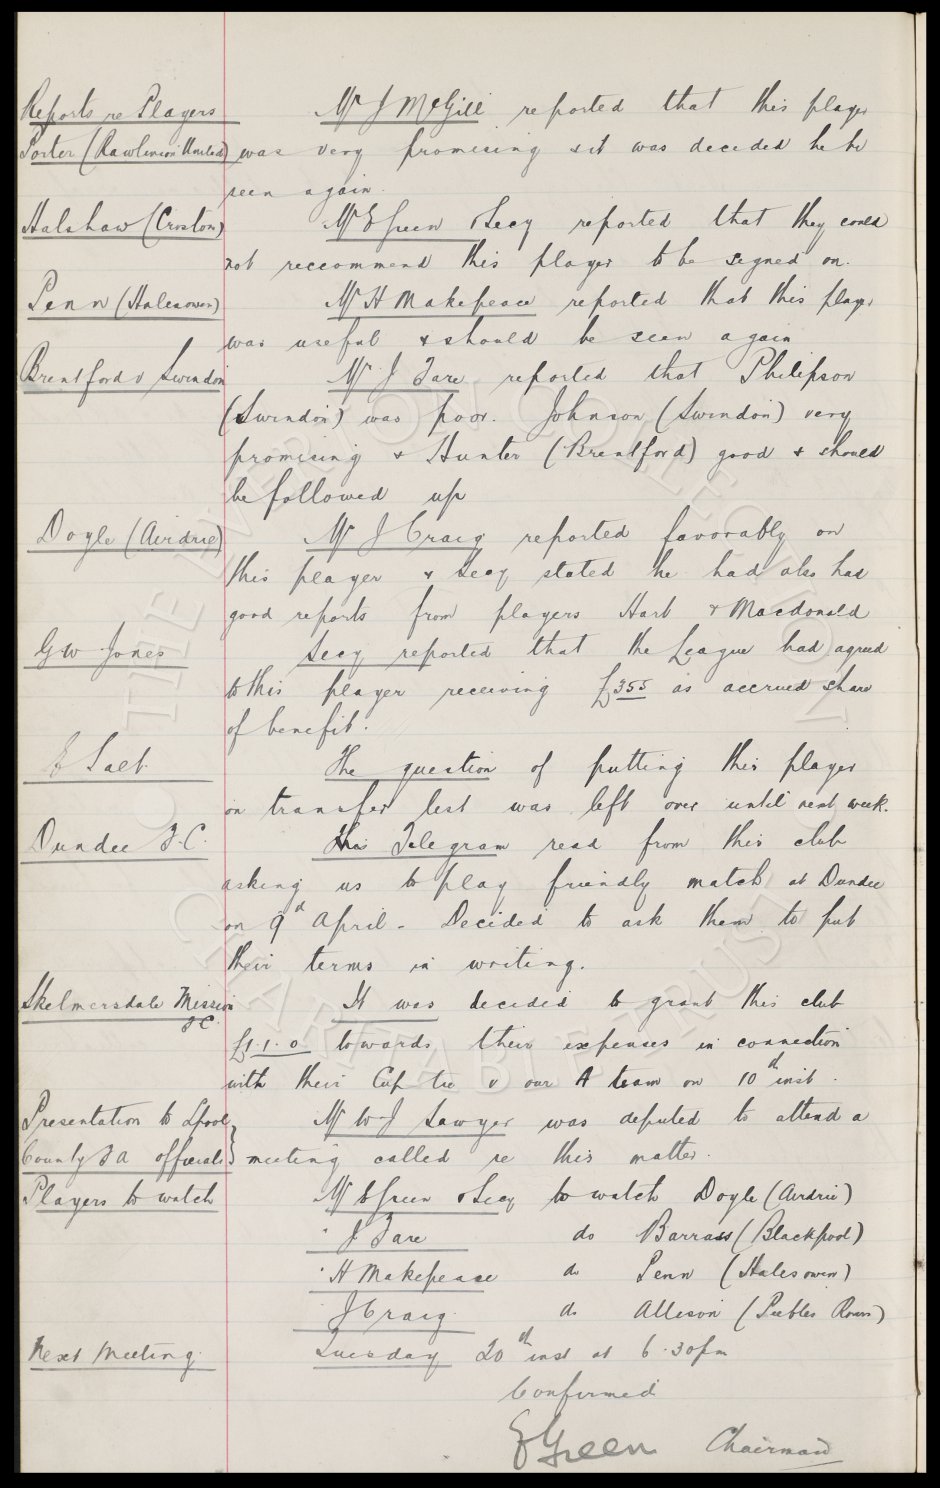 Reports re Players Mr J McGill reported that this player
Porter (Rawlinson United) was very promising & it was decided he be
seen again.
Halshaw (Croston) Mr E Green & Secy reported that they could
not reccommend this player to be signed on.
Penn (Halesowen) Mr H Makepeace reported that this player
was useful & should be seen again
Brentford v Swindon Mr J Fare reported that Philipson
(Swindon) was poor. Johnson (Swindon) very
promising & Hunter (Brentford) good & should
be followed up
Doyle (Airdrie) Mr J Craig reported favorably on
this player & Secy stated he had also had
good reports from players Hart & Macdonald
G W Jones Secy reported that the League had agreed
to this player receiving £355 as accrued share
of benefit.
Salt The question of putting this player
on transfer list was left over until next week.
Dundee F.C. Telegram read from this club
asking us to play friendly match at Dundee
on 9th April. Decided to ask them to put
their terms in writing.
Skelmersdale Mission It was decided to grant this club
F C
£1.1.0 towards their expenses in connection
with their Cup tie v our A team on 10th inst.
Presentation to Lpool Mr W J Sawyer was deputed to attend a
County F A officials meeting called re this matter.
Players to watch Mr E Green & Secy to watch Doyle (Airdrie)
" J Fare do Barrass (Blackpool)
" H Makepeace do Penn (Halesowen)
J Craig do Allison (Peebles Rovers)
Next Meeting. Tuesday 20th inst at 6.30pm
Confirmed
E Green Chairman
THE EVERTON COLLECTION
CHARITABLE TRUST